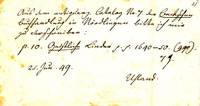 Aus dem antiquar. Catalog No 7 der Beck'schen
Buchhandlung in Nördlingen bitte ich mir
zu verschreiben:
p. 10. Geistliche Lieder s. s. 1640–50. (499).
21. Jun. 49.
Uhland.